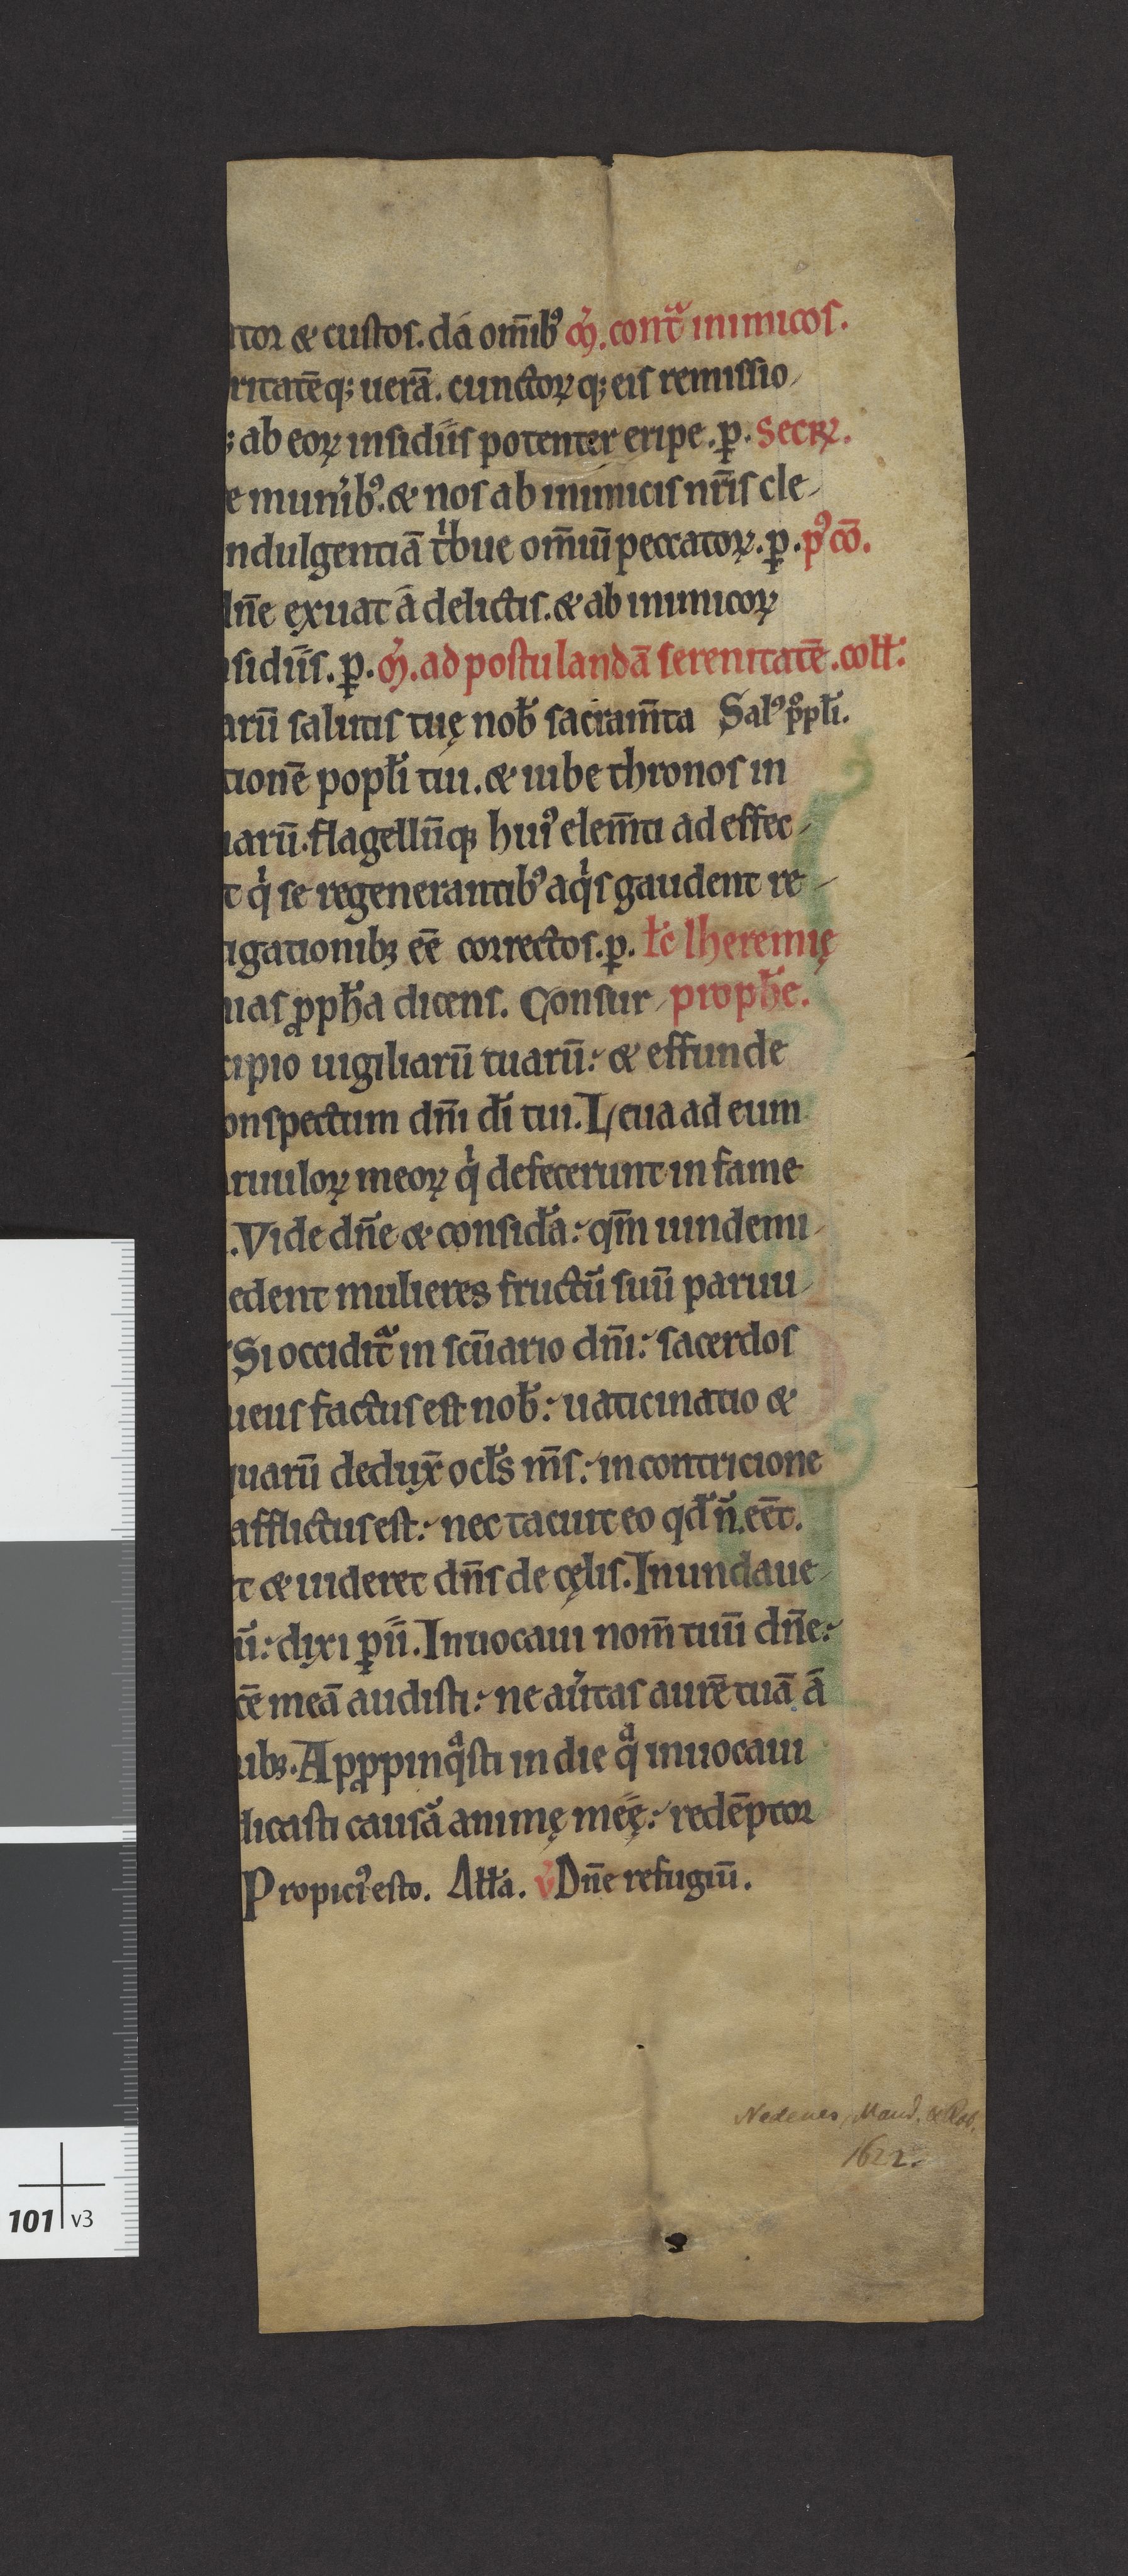 tor & custos. da om̅ib᷒ ɱ̓. cont̅ᵃ inimicos.
ritatēq; uerā. cunctoꝝq; eis remissio-
; ab eoꝝ insidiis potenter eripe. ꝑ. Secꝝ.
e munib᷒. & nos ab inimicis nr̅is cle-
ndulgentiā tⁱbue om̅iū peccatoꝝ. ꝑ. p᷒ cō.
dn̅e exuat a delictis. & ab inimicoꝝ
sidiis. ꝑ. ɱ̓. ad postulandā serenitatē. coll̅.
arū salutis tuę nob̅ sacram̅ta Sal᷒ ppl̅i.
tionē popl̅i tui. & iube thronos in
uarū. flagellūqꝫ hui᷒ elem̅ti ad effec-
t qⁱ se regenerantib᷒ aqⁱs gaudent re-
igationibꝫ eē correctos. ꝑ. lc̅ Iheremię
ias ꝓph̅a dicens. Consur- proph̅e.
cipio uigiliarū tuarū: & effunde
onspectum dn̅i di̅ tui. Leua ad eum
ruuloꝝ meoꝝ qⁱ defecerunt in fame
. Vide dn̅e & consid̅a: qm̅ uindemi-
edent mulieres fructū suū paruu-
Si occidit᷑ in sc̅uario dn̅i: sacerdos
ueus factus est nob̅: uaticinatio &
quarū dedux̅ ocl̅s m̅s: in contricione
afflictus est: nec tacuit eo qd̅ n̅ eēt.
t & uideret dn̅s de cęlis. Inundaue-
ū: dixi ꝑii. Inuocaui nom̅ tuū dn̅e:
cē meā audisti: ne au̓tas aurē tuā a
ibꝫ. Apꝓpinqᵃsti in die qᵃ inuocaui
dicasti causā animę meę: redēptor
Propici᷒ esto. All̅a. v̓ Dn̅e refugiū.
Nedenes, Mand. & Rob.
1622.